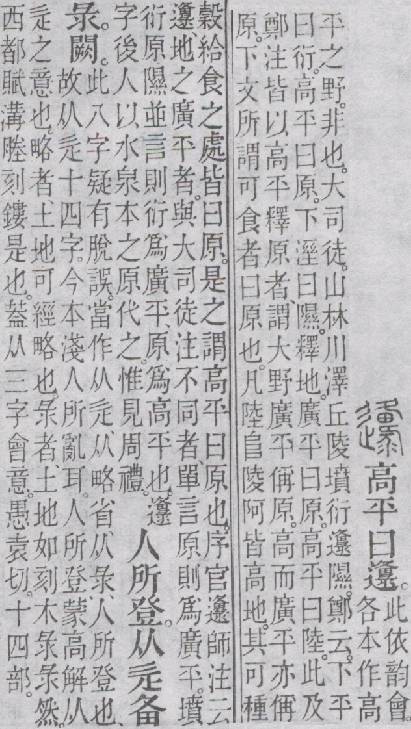 邍高平曰邍。此依韵會。
各本作高
平之野。非也。大司徒。山林川澤丘陵墳衍邍隰。鄭云。下平
曰衍。高平曰原。下溼曰隰。釋地。廣平曰原。高平曰陸。此及
鄭注皆以高平釋原者、謂大野廣平偁原。高而廣平亦偁
原。下文所謂可食者曰原也。凡陸𨸏陵阿皆高地。其可種
穀給食之處皆曰原。是之謂高平曰原也。序官邍師注云
邍、地之廣平者。與大司徒注不同者、單言原則爲廣平。墳
衍原隰並言則衍爲廣平、原爲高平也。邍
字後人以水泉本之原代之。惟見周禮。
人所登。从辵备
彔。闕。
此八字疑有脫誤。當作从辵从略省从彔。人所登也、
故从辵十四字。今本淺人所亂耳。人所登蒙高解从
辵之意也。略者、土地可經略也。彔者、土地如刻木彔彔然。
西都賦溝塍刻鏤是也。葢从三字會意。愚袁切。十四部。